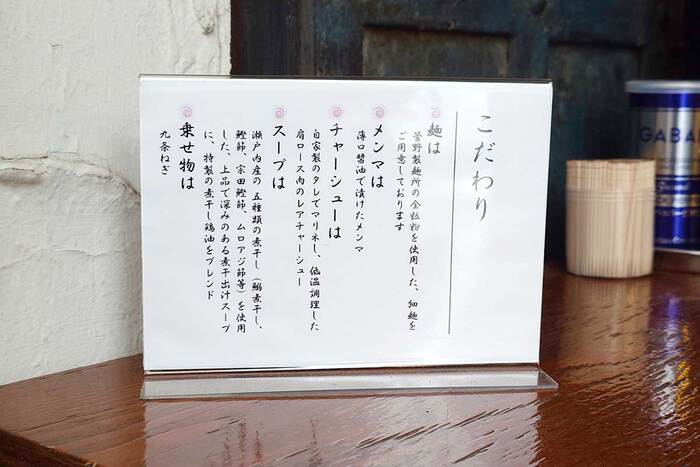 こだわり
麺は
菅野製麺所の全粒粉を使用した、細麺を
ご用意しております
メンマは
薄口醤油で漬けたメンマ
チャーシューは
自家製のタレでマリネし、低温調理した
肩ロース肉のレアチャーシュー
スープは
瀬戸内産の五種類の煮干し（鰯煮干し、
鰹節、宗田鰹節、ムロアジ節等）を使用
した、上品で深みのある煮干出汁スープ
に、特製の煮干し鶏油をブレンド
乗せ物は
九条ねぎ
GABAN